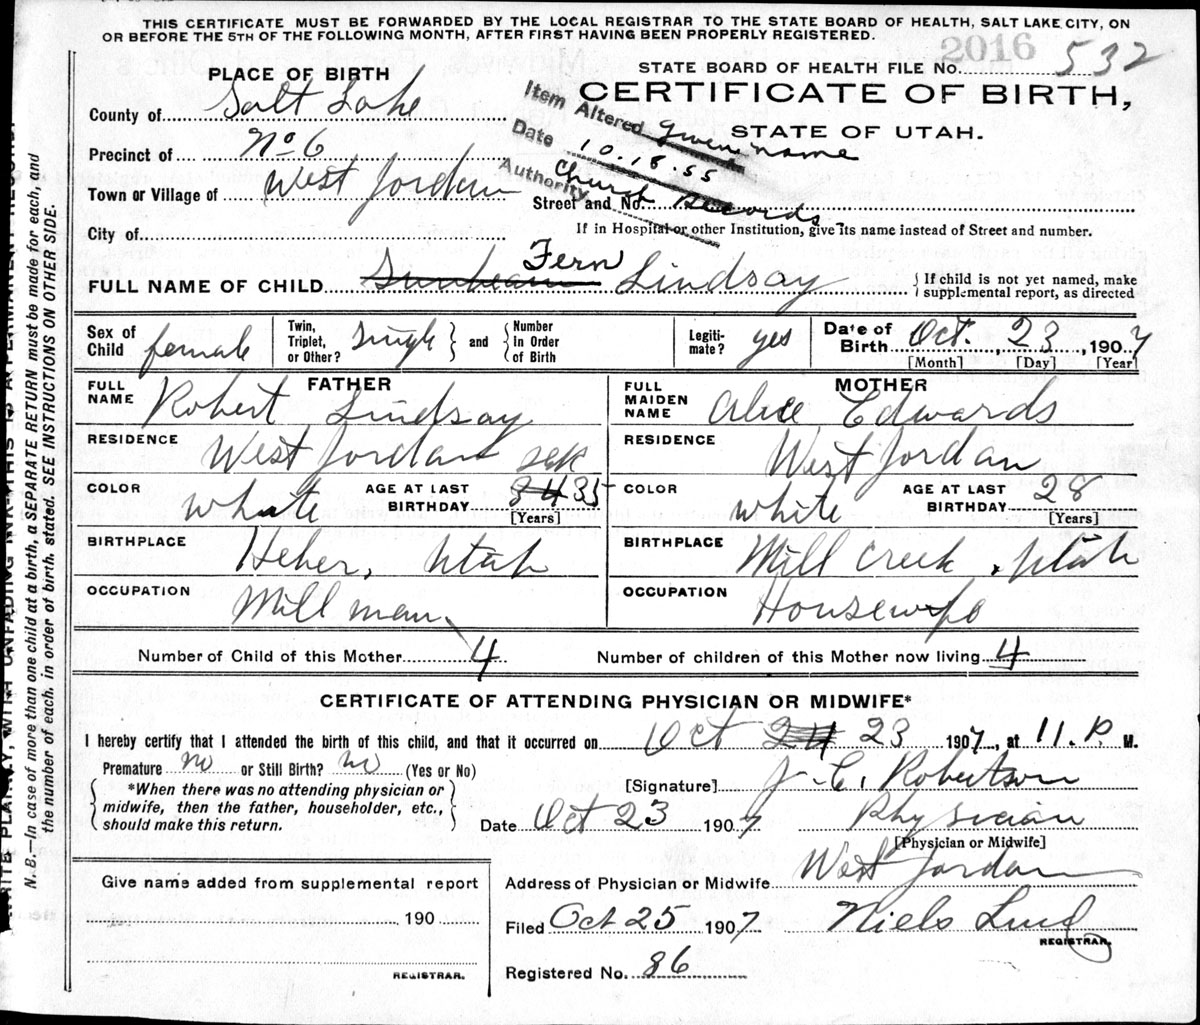 THIS CERTIFICATE MUST BE FORWARDED BY THE LOCAL REGISTRAR TO THE STATE BOARD OF HEALTH, SALT LAKE CITY, ON
OR BEFORE THE 5TH OF THE FOLLOWING MONTH, AFTER FIRST HAVING BEEN PROPERLY REGISTERED.
2016
STATE BOARD OF HEALTH FILE No. 532
PLACE OF BIRTH
CERTIFICATE OF BIRTH,
STATE OF UTAH.
County of Salt Lake
Precinct of No 6
Town or Village of West Jordan
City of
Item Altered given name
Date 10.18.55
Authority Church Records
Street and No.
If in Hospital or other Institution, give its name instead of Street and number.
FULL NAME OF CHILD Sunbeam Fern Lindsay
{If child is not yet named, make
supplemental report, as directed
Sex of Child female
Twin, Triplet, or Other? Single } and { Number in Order of Birth
Legitimate? yes
Date of Birth Oct. 23, 1907
[Month] [Day] [Year]
FATHER
FULL NAME Robert Lindsay
RESIDENCE West Jordan
COLOR white
AGE AT LAST BIRTHDAY 34 35
[Years]
BIRTHPLACE Heber, Utah
OCCUPATION Mill man
MOTHER
FULL MAIDEN NAME Alice Edwards
RESIDENCE West Jordan
COLOR white
AGE AT LAST BIRTHDAY 28
[Years]
BIRTHPLACE Mill Creek, Utah
OCCUPATION Housewife
Number of Child of this Mother 4
Number of children of this Mother now living 4
CERTIFICATE OF ATTENDING PHYSICIAN OR MIDWIFE*
I hereby certify that I attended the birth of this child, and that it occurred on Oct 24 23 1907, at 11. P. M.
Premature no or Still Birth? no (Yes or No)
{*When there was no attending physician or
midwife, then the father, householder, etc.,
should make this return.}
[Signature] J. C. Robertson
Date Oct 23 1907
Physician
[Physician or Midwife]
Address of Physician or Midwife West Jordan
Filed Oct 25 1907
Niels Lind
REGISTRAR.
Registered No. 86
Give name added from supplemental report
190
REGISTRAR.
WRITE PLAINLY, WITH UNFADING INK-THIS IS A PERMANENT RECORD.
N. B.—In case of more than one child at a birth, a SEPARATE RETURN must be made for each, and
the number of each, in order of birth, stated. SEE INSTRUCTIONS ON OTHER SIDE.